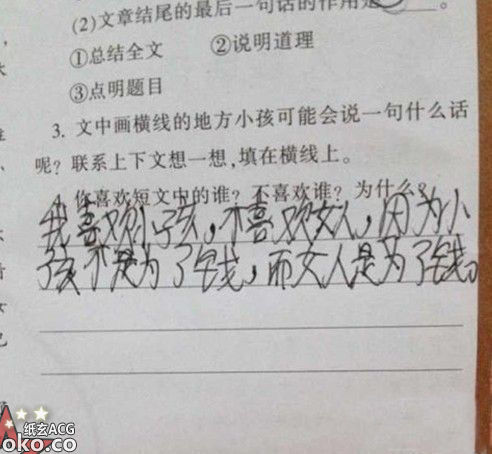 (2)文章结尾的最后一句话的作用是
。
①总结全文 ②说明道理
③点明题目
3. 文中画横线的地方小孩可能会说一句什么话
呢?联系上下文想一想,填在横线上。
4. 你喜欢短文中的谁?不喜欢谁?为什么?
我喜欢小孩,不喜欢女人,因为小
孩不是为了钱,而女人是为了钱。
纸玄ACG
oko.co